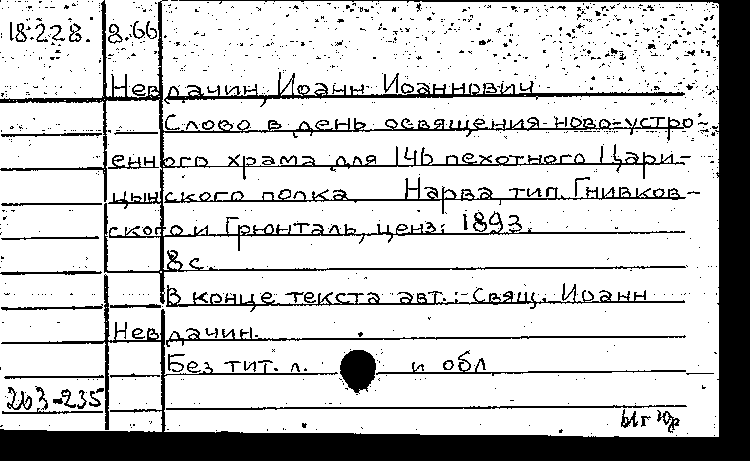 18.228. 8.66.
Невдачин, Иоанн Иоаннович
Слово в день освящения ново-устро-
енного храма для 146 пехотного Цари-
цынского полка. Нарва, тип. Гнивков-
ского и Грюнталь, ценз: 1893.
8 с.
В конце текста авт.: Свящ. Иоанн
Невдачин.
Без тит. л. и обл
263-235